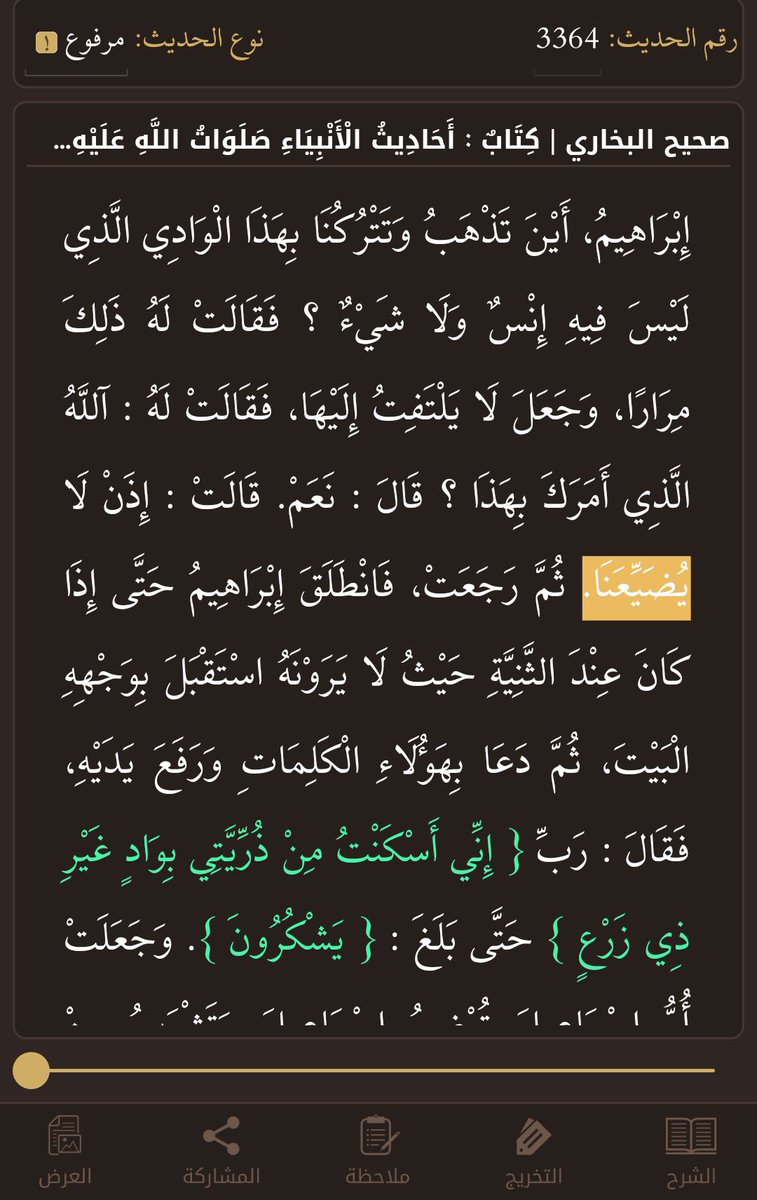 رقم الحديث: 3364 نوع الحديث: مرفوع
صحيح البخاري | كِتَابٌ : أَحَادِيثُ الْأَنْبِيَاءِ صَلَوَاتُ اللَّهِ عَلَيْهِ...
إِبْرَاهِيمُ، أَيْنَ تَذْهَبُ وَتَتْرُكُنَا بِهَذَا الْوَادِي الَّذِي
لَيْسَ فِيهِ إِنْسٌ وَلَا شَيْءٌ ؟ فَقَالَتْ لَهُ ذَلِكَ
مِرَارًا، وَجَعَلَ لَا يَلْتَفِتُ إِلَيْهَا، فَقَالَتْ لَهُ : آللَّهُ
الَّذِي أَمَرَكَ بِهَذَا ؟ قَالَ : نَعَمْ. قَالَتْ : إِذَنْ لَا
يُضَيِّعَنَا. ثُمَّ رَجَعَتْ، فَانْطَلَقَ إِبْرَاهِيمُ حَتَّى إِذَا
كَانَ عِنْدَ الثَّنِيَّةِ حَيْثُ لَا يَرَوْنَهُ اسْتَقْبَلَ بِوَجْهِهِ
الْبَيْتَ، ثُمَّ دَعَا بِهَؤُلَاءِ الْكَلِمَاتِ وَرَفَعَ يَدَيْهِ،
فَقَالَ : رَبِّ { إِنِّي أَسْكَنْتُ مِنْ ذُرِّيَّتِي بِوَادٍ غَيْرِ
ذِي زَرْعٍ } حَتَّى بَلَغَ : { يَشْكُرُونَ }. وَجَعَلَتْ
الشرح التخريج ملاحظة المشاركة العرض